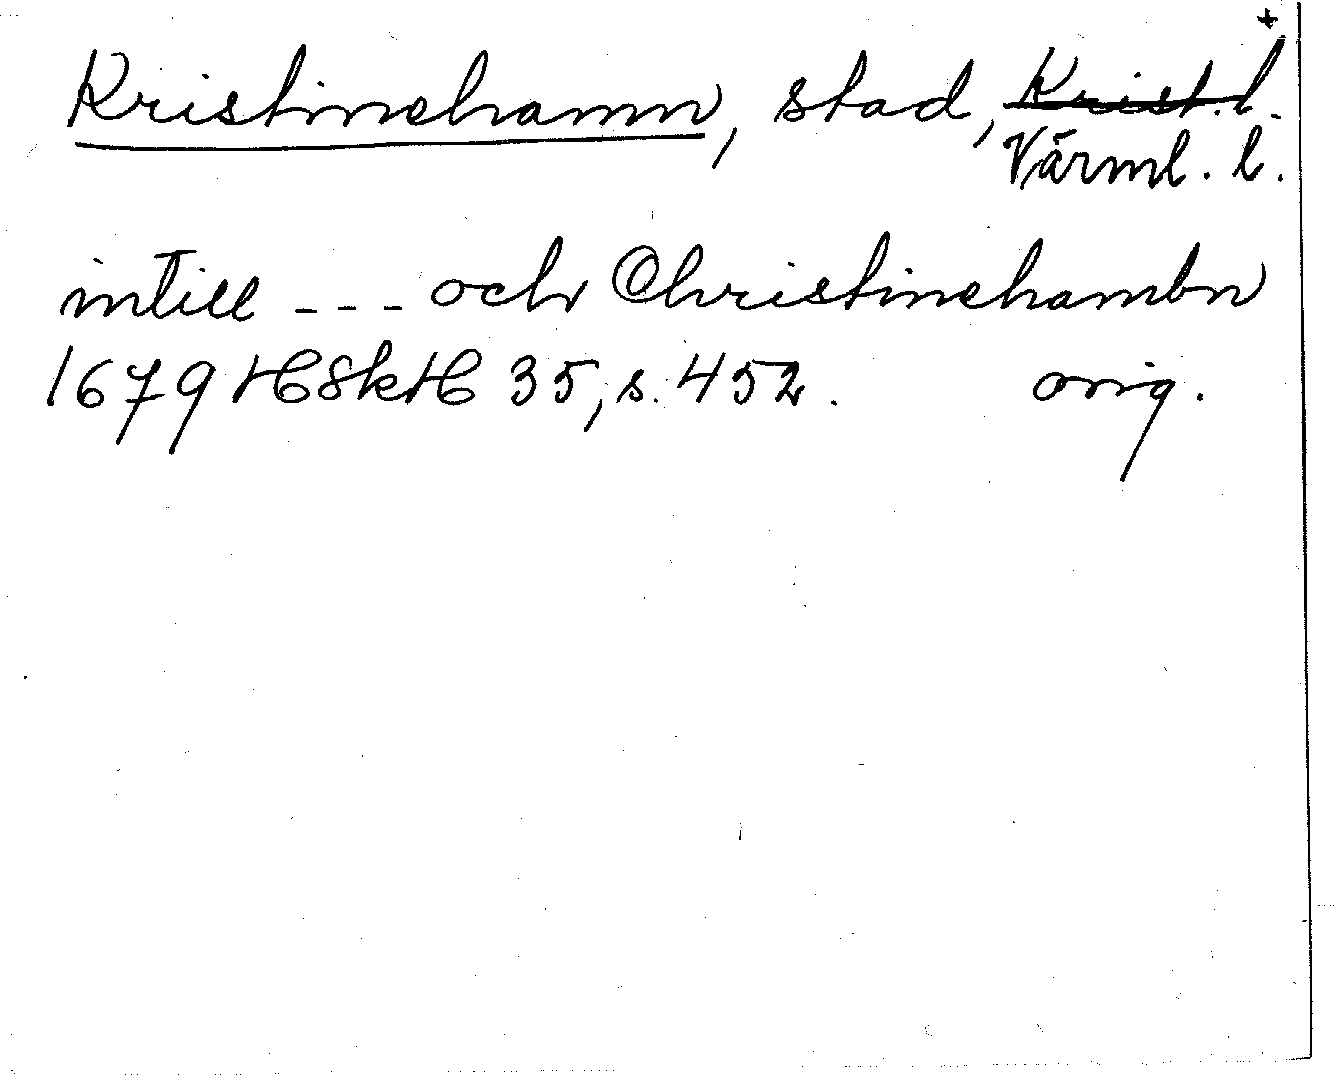 +
Kristinehamn, stad, Krist. l.
Värml. l.
intill --- och Christinehambn
1679 HSkH 35, s. 452. orig.